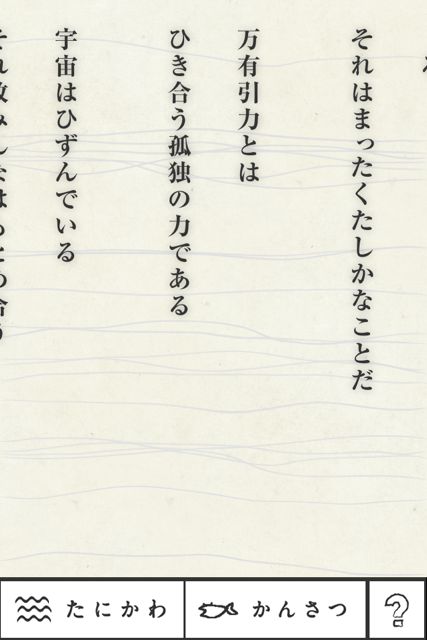 それはまったくたしかなことだ
万有引力とは
ひき合う孤独の力である
宇宙はひずんでいる
たにかわ
かんさつ
?